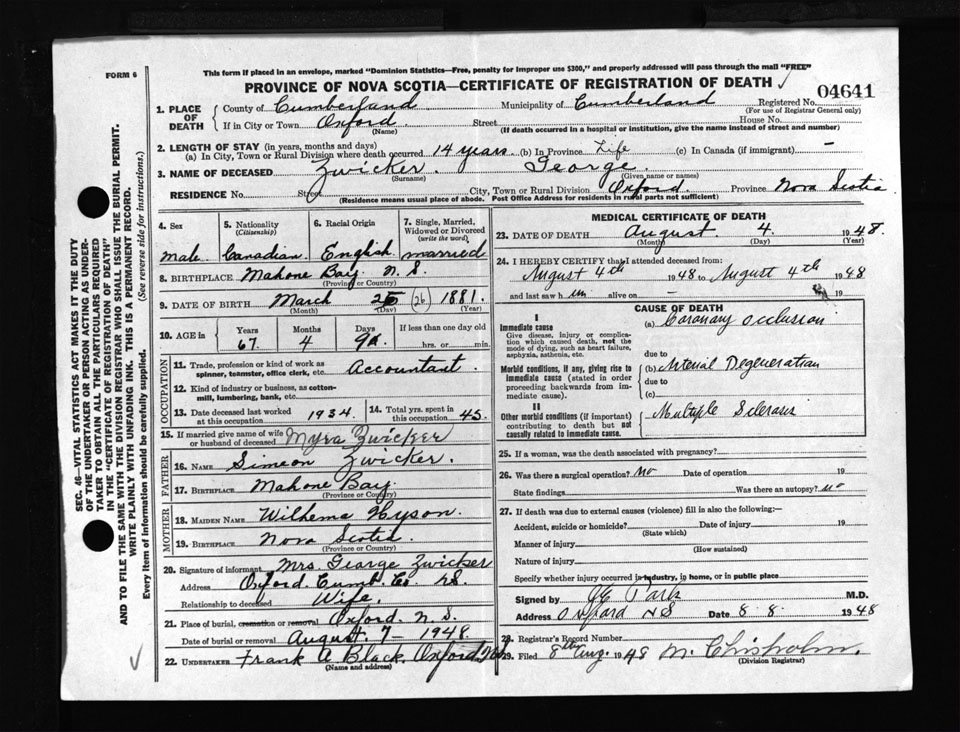 FORM 6
This form if placed in an envelope, marked "Dominion Statistics—Free, penalty for improper use $300," and properly addressed will pass through the mail "FREE"
PROVINCE OF NOVA SCOTIA—CERTIFICATE OF REGISTRATION OF DEATH
04641
1. PLACE OF DEATH County of Cumberland Municipality of Cumberland Registered No.
(For use of Registrar General only)
If in City or Town Oxford Street House No.
(Name) (If death occurred in a hospital or institution, give the name instead of street and number)
2. LENGTH OF STAY (in years, months and days)
(a) In City, Town or Rural Division where death occurred 14 years (b) In Province Life (c) In Canada (if immigrant) —
3. NAME OF DECEASED Zwicker. George.
(Surname) (Given name or names)
RESIDENCE No. Street City, Town or Rural Division Oxford. Province Nova Scotia
(Residence means usual place of abode. Post Office Address for residents in rural parts not sufficient)
4. Sex 5. Nationality (Citizenship) 6. Racial Origin 7. Single, Married, Widowed or Divorced (write the word)
Male Canadian English married
8. BIRTHPLACE Mahone Bay N.S.
(Province or Country)
9. DATE OF BIRTH March 26 (26) 1881.
(Month) (Day) (Year)
10. AGE in Years Months Days If less than one day old
67 4 9d. hrs. or min.
OCCUPATION
11. Trade, profession or kind of work as spinner, teamster, office clerk, etc. Accountant.
12. Kind of industry or business, as cotton-mill, lumbering, bank, etc.
13. Date deceased last worked at this occupation 1934 14. Total yrs. spent in this occupation 45.
15. If married give name of wife or husband of deceased Myra Zwicker
FATHER
16. NAME Simeon Zwicker.
17. BIRTHPLACE Mahone Bay.
(Province or Country)
MOTHER
18. MAIDEN NAME Wilhema Hyson.
19. BIRTHPLACE Nova Scotia.
(Province or Country)
20. Signature of informant Mrs. George Zwicker
Address Oxford. Cumb. Co. N.S.
Relationship to deceased Wife.
21. Place of burial, cremation or removal Oxford. N.S.
Date of burial or removal August 7 — 1948.
22. UNDERTAKER Frank A Black. Oxford N.S.
(Name and address)
MEDICAL CERTIFICATE OF DEATH
23. DATE OF DEATH August 4. 1948.
(Month) (Day) (Year)
24. I HEREBY CERTIFY that I attended deceased from:
August 4th 1948 to August 4th 1948
and last saw him alive on — 19
CAUSE OF DEATH
I
Immediate cause (a) Coronary Occlusion
Give disease, injury or complication which caused death, not the mode of dying, such as heart failure, asphyxia, asthenia, etc.
due to
Morbid conditions, if any, giving rise to immediate cause (stated in order proceeding backwards from immediate cause).
(b) Arterial Degeneration
due to
(c)
II
Other morbid conditions (if important) contributing to death but not causally related to immediate cause.
Multiple Sclerosis
25. If a woman, was the death associated with pregnancy?
26. Was there a surgical operation? No Date of operation 19
State findings Was there an autopsy? no
27. If death was due to external causes (violence) fill in also the following:—
Accident, suicide or homicide? Date of injury 19
(State which)
Manner of injury
(How sustained)
Nature of injury
Specify whether injury occurred in industry, in home, or in public place
Signed by M.D.
Address Oxford NS Date 8. 8. 1948
28. Registrar's Record Number
29. Filed 8th Aug. 1948 M. Chisholm.
(Division Registrar)
SEC. 46—VITAL STATISTICS ACT MAKES IT THE DUTY
OF THE UNDERTAKER OR PERSON ACTING AS UNDER-
TAKER TO OBTAIN ALL THE PARTICULARS REQUIRED
IN THE "CERTIFICATE OF REGISTRATION OF DEATH"
AND TO FILE THE SAME WITH THE DIVISION REGISTRAR WHO SHALL ISSUE THE BURIAL PERMIT.
WRITE PLAINLY WITH UNFADING INK. THIS IS A PERMANENT RECORD.
Every item of information should be carefully supplied. (See reverse side for instructions.)